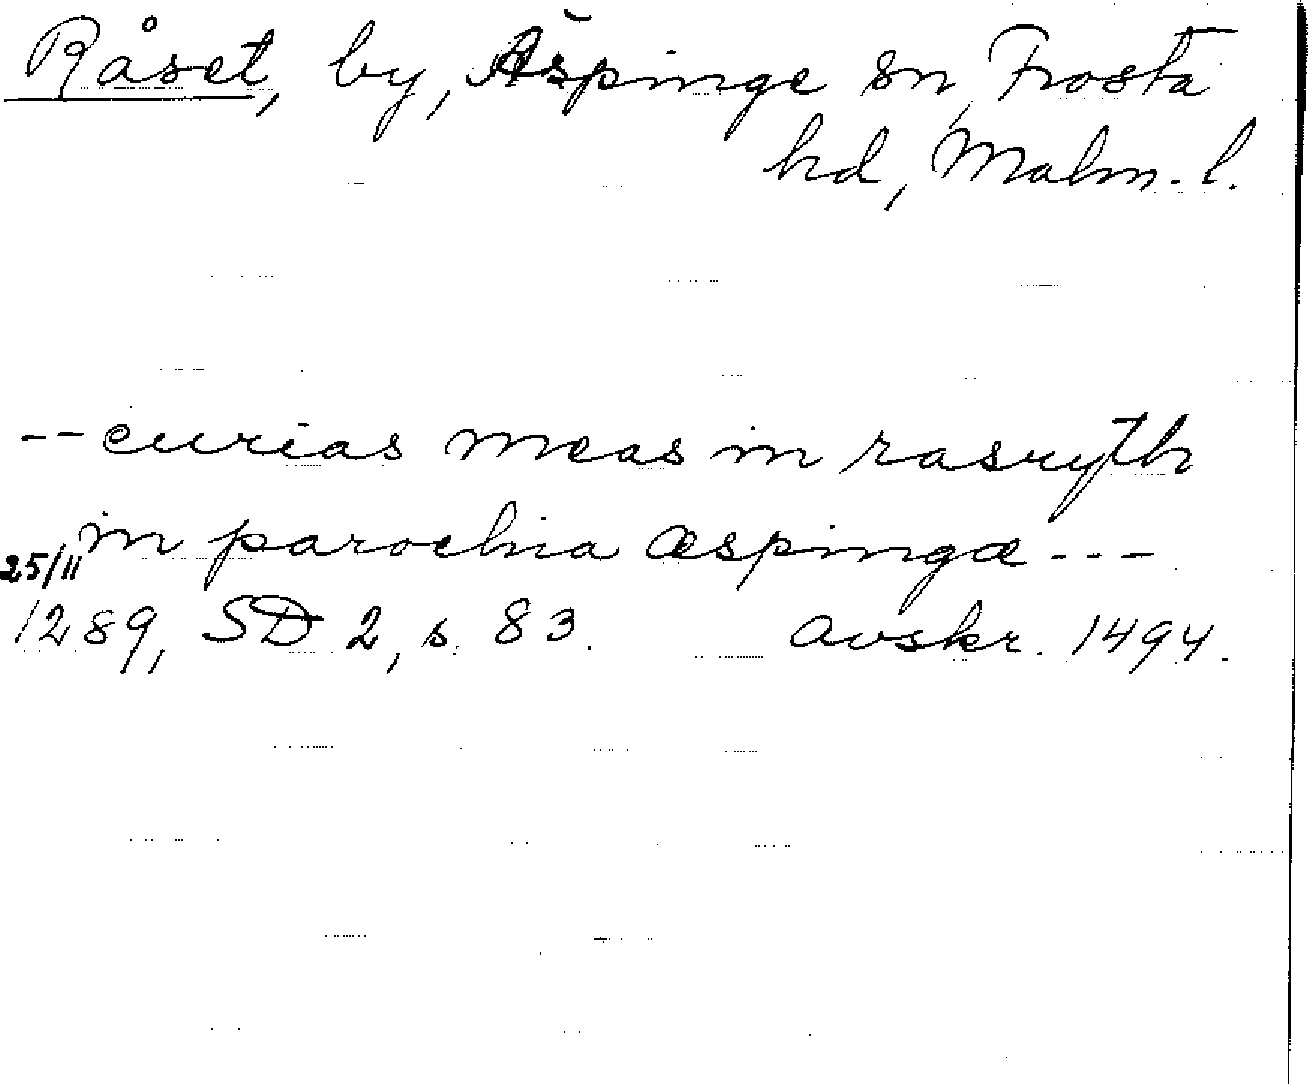 Råset, by, Äspinge sn, Frosta
hd, Malm. l.
-- curias meas in rasryth
in parochia æspingæ ---
25/11
1289, SD 2, s. 83. avskr. 1494.